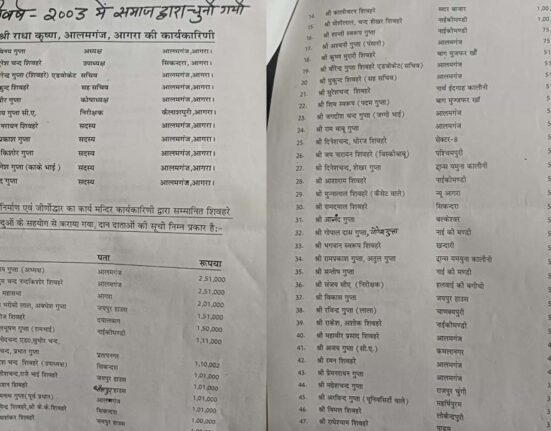 वर्ष - 2003 में समाज द्वारा चुनी गयी
श्री राधा कृष्ण, आलमगंज, आगरा की कार्यकारिणी
गुप्ता अध्यक्ष आलमगंज,आगरा।
चन्द शिवहरे उपाध्यक्ष सिकन्दरा, आगरा।
गुप्ता (शिवहरे) एडवोकेट सचिव आलमगंज,आगरा।
शिवहरे सह सचिव आलमगंज,आगरा।
गुप्ता कोषाध्यक्ष आलमगंज,आगरा।
गुप्ता सी.ए. निरीक्षक कैलाशपुरी,आगरा।
नरायन शिवहरे सदस्य आलमगंज,आगरा।
प्रकाश गुप्ता सदस्य आलमगंज,आगरा।
किशोर गुप्ता सदस्य आलमगंज,आगरा।
गुप्ता (काके भाई) सदस्य आलमगंज,आगरा।
गुप्ता सदस्य आलमगंज,आगरा।
निर्माण एवं जीर्णोद्धार का कार्य मन्दिर कार्यकारिणी द्वारा सम्मानित शिवहरे
के सहयोग से कराया गया, दान दाताओं की सूची निम्न प्रकार है:-
पता रूपया
गुप्ता (अध्यक्ष) आलमगंज 2,51,000
चन्द नन्दकिशोर शिवहरे आलमगंज 2,51,000
महासभा आगरा 2,01,000
अवधेश गुप्ता जयपुर हाउस 1,51,000
शिवहरे दयालबाग 1,50,000
गुप्ता (रामभाई) नाईकीमण्डी 1,11,000
चन्द, प्रभात गुप्ता प्रतापनगर
चन्द शिवहरे (उपाध्यक्ष) सिकन्दरा 1,10,002
भाई शिवहरे जयपुर हाउस 1,01,000
शिवहरे 1,01,000
गुप्ता(पूर्व प्रधान) आलमगंज 1,01,000
शिवहरे,श्री वी.के.शिवहरे सिकन्दरा 1,01,000
शिवहरे जयपुर हाउस 1,00,000
14. श्री शिवहरे सदर बाजार 1,00
15. श्री चन्द शेखर शिवहरे नाईकीमण्डी 1,00
16. श्री शान्ती स्वरूप गुप्ता नाईकीमण्डी 75
17. श्री अश्वनी गुप्ता (पंसारी) आलमगंज 75
18. श्री कृष्ण मुरारी शिवहरे बाग मुजफर खाँ 51
19. श्री वीरेन्द्र गुप्ता शिवहरे एडवोकेट(सचिव) आलमगंज 51
20. श्री मुकुन्द शिवहरे (सह सचिव) आलमगंज
21. श्री सुरेशचन्द्र शिवहरे नार्थ ईदगाह कालौनी
22. श्री शिव स्वरूप (पदम गुप्ता) बाग मुजफ्फर खाँ
23. श्री जगदीश चन्द गुप्ता (जग्गो भाई) आलमगंज
24. श्री राम बाबू गुप्ता आलमगंज
25. श्री दिनेशचन्द, धीरज शिवहरे सेक्टर-8
26. श्री जय नरायन शिवहरे पश्चिमपुरी
27. श्री दिनेशचन्द, शेखर गुप्ता ट्रान्स यमुना कालौनी
28. श्री आशाराम शिवहरे आलमगंज
29. श्री मुन्नालाल शिवहरे न्यू आगरा
30. श्री रामदयाल शिवहरे सिकन्दरा
31. श्री आनन्द गुप्ता बल्केश्वर
32. श्री गोपाल दास गुप्ता, नाई की मण्डी
33. श्री भगवान स्वरूप शिवहरे खन्दारी
34. श्री रामप्रकाश गुप्ता, अतुल गुप्ता ट्रान्स यमुना कालौनी
35. श्री सन्तोष गुप्ता नाई की मण्डी
36. श्री संजय सीए (निरीक्षक) हलवाई की बगीची
37. श्री विकास गुप्ता जयपुर हाउस
38. श्री रविन्द्र गुप्ता (लाला) चाणक्यपुरी
39. श्री राकेश, अशोक शिवहरे नाईकीमण्डी
40. श्री महावीर प्रसाद शिवहरे आलमगंज
41. श्री अजय गुप्ता (सी.ए.) कमलानगर
42. श्री रमन शिवहरे आलमगंज
43. श्री प्रेमनरायन गुप्ता आलमगंज
44. श्री महेशचन्द गुप्ता राजपुर चुंगी
45. श्री अरविन्द गुप्ता (यूनिवर्सिटी वाले) महर्षिपुरम
46. श्री विमल शिवहरे लोकेन्द्रपुरी
47. श्री राधेश्याम शिवहरे